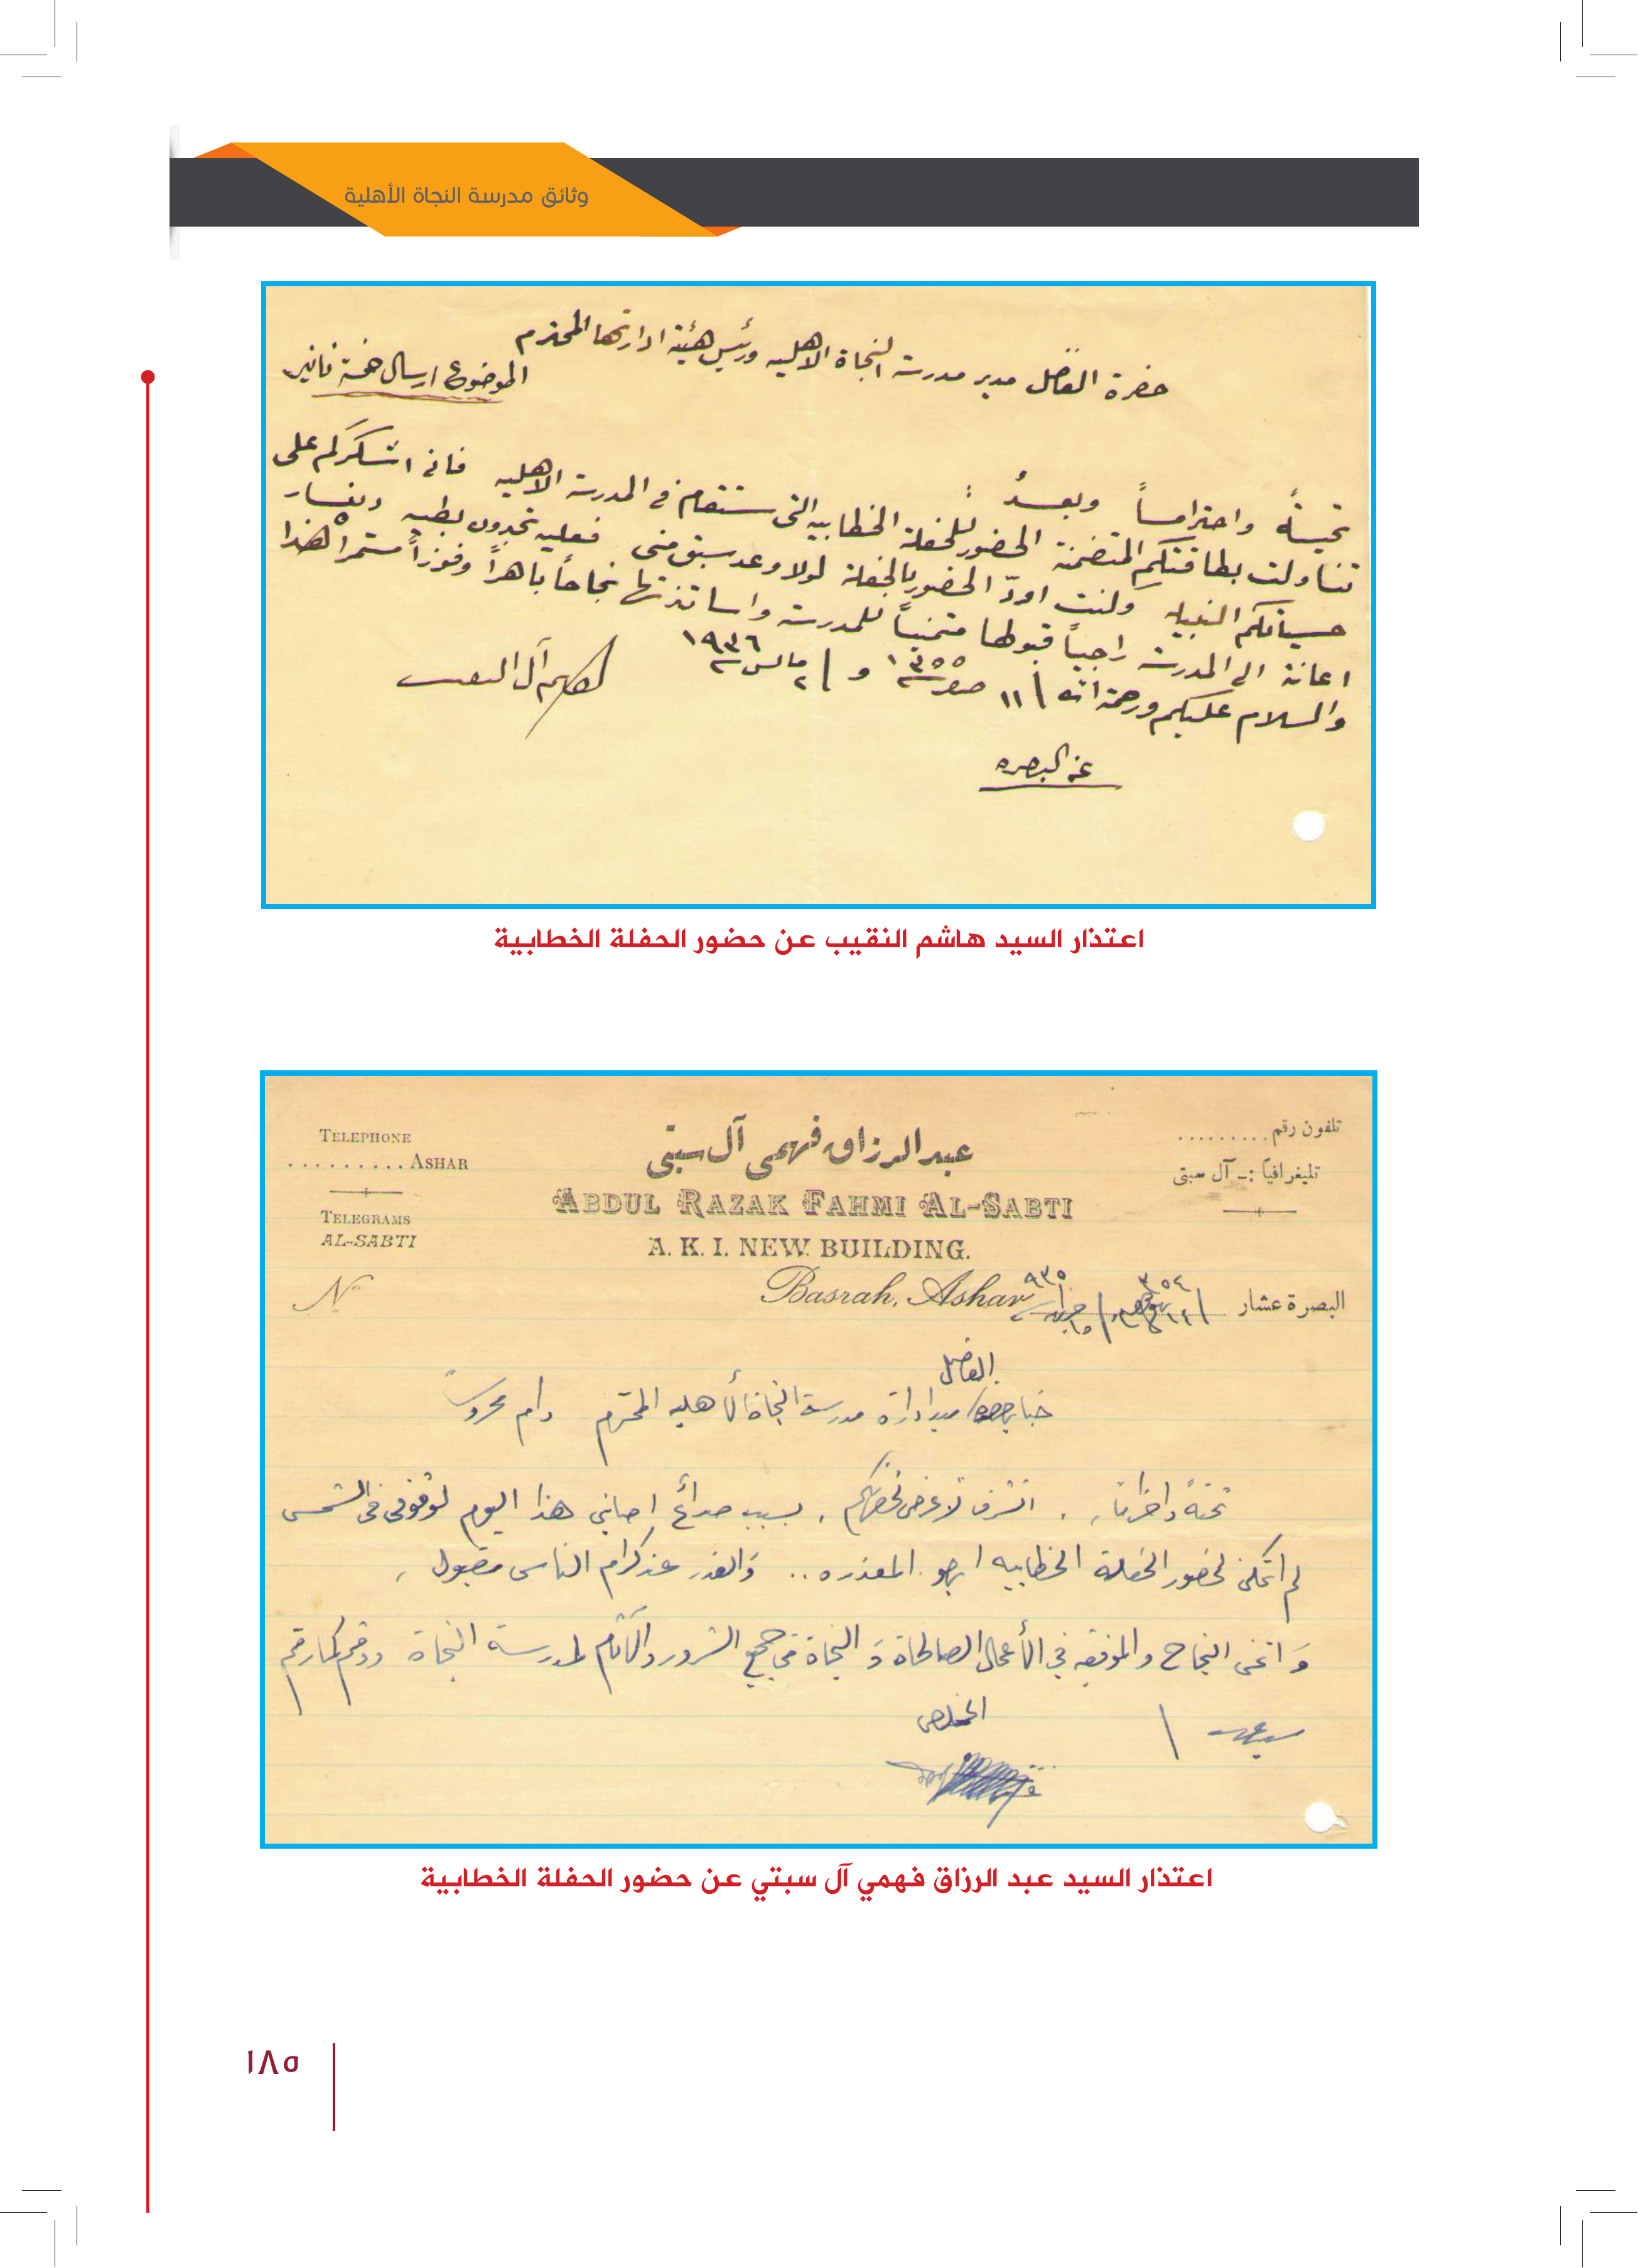 وثائق مدرسة النجاة الأهلية
حضرة الفاضل مدير مدرسة النجاة الاهليه ورئيس هيئة ادارتها المحترم
الموضوع ارسال خمسة دنانير
تحيةً واحتراماً وبعدُ
تناولت بطاقتكم المتضمنة الحضور للحفلة الخطابيه التي ستقام في المدرسة الاهليه فاني اشكركم على
حسياتكم النبيله ولنت اودّ الحضور بالحفلة لولا وعد سبق مني فعليه تجدون بطيه دينار
اعانة الى المدرسة راجياً قبولها متمنياً للمدرسة واساتذتها نجاحاً باهراً وفوزاً مستمراً هذا
والسلام عليكم ورحمة الله ١١ صفر ١٣٥٥ و ٢ مايس ١٩٣٦
هاشم آل النقيب
عن البصره
اعتذار السيد هاشم النقيب عن حضور الحفلة الخطابية
تلفون رقم.........
تليغرافياً :ـ آل سبتي
عبد الرزاق فهمي آل سبتي
TELEPHONE
.........ASHAR
TELEGRAMS
AL-SABTI
ABDUL RAZAK FAHMI AL-SABTI
A. K. I. NEW BUILDING.
No
Basrah, Ashar
البصرة عشار
الفاضل
جناب مدير ادارة مدرسة النجاة الأهليه المحترم دام محروساً
تحيةً واحتراماً، اتشرف لأعرض لحضرتكم، بسبب صداع اصابني هذا اليوم لوقوفي في الشمس
لم اتمكن لحضور الحفلة الخطابيه ارجو المعذره .. وَالعذر عند كرام الناس مقبول،
وَ اتمنى النجاح والموفقيه في الأعمال الصالحاة وَ النجاة من جميع الشرور والآثام لمدرسة النجاة ودمتم كما رمتم
سيدي /
المخلص
اعتذار السيد عبد الرزاق فهمي آل سبتي عن حضور الحفلة الخطابية
١٨٥